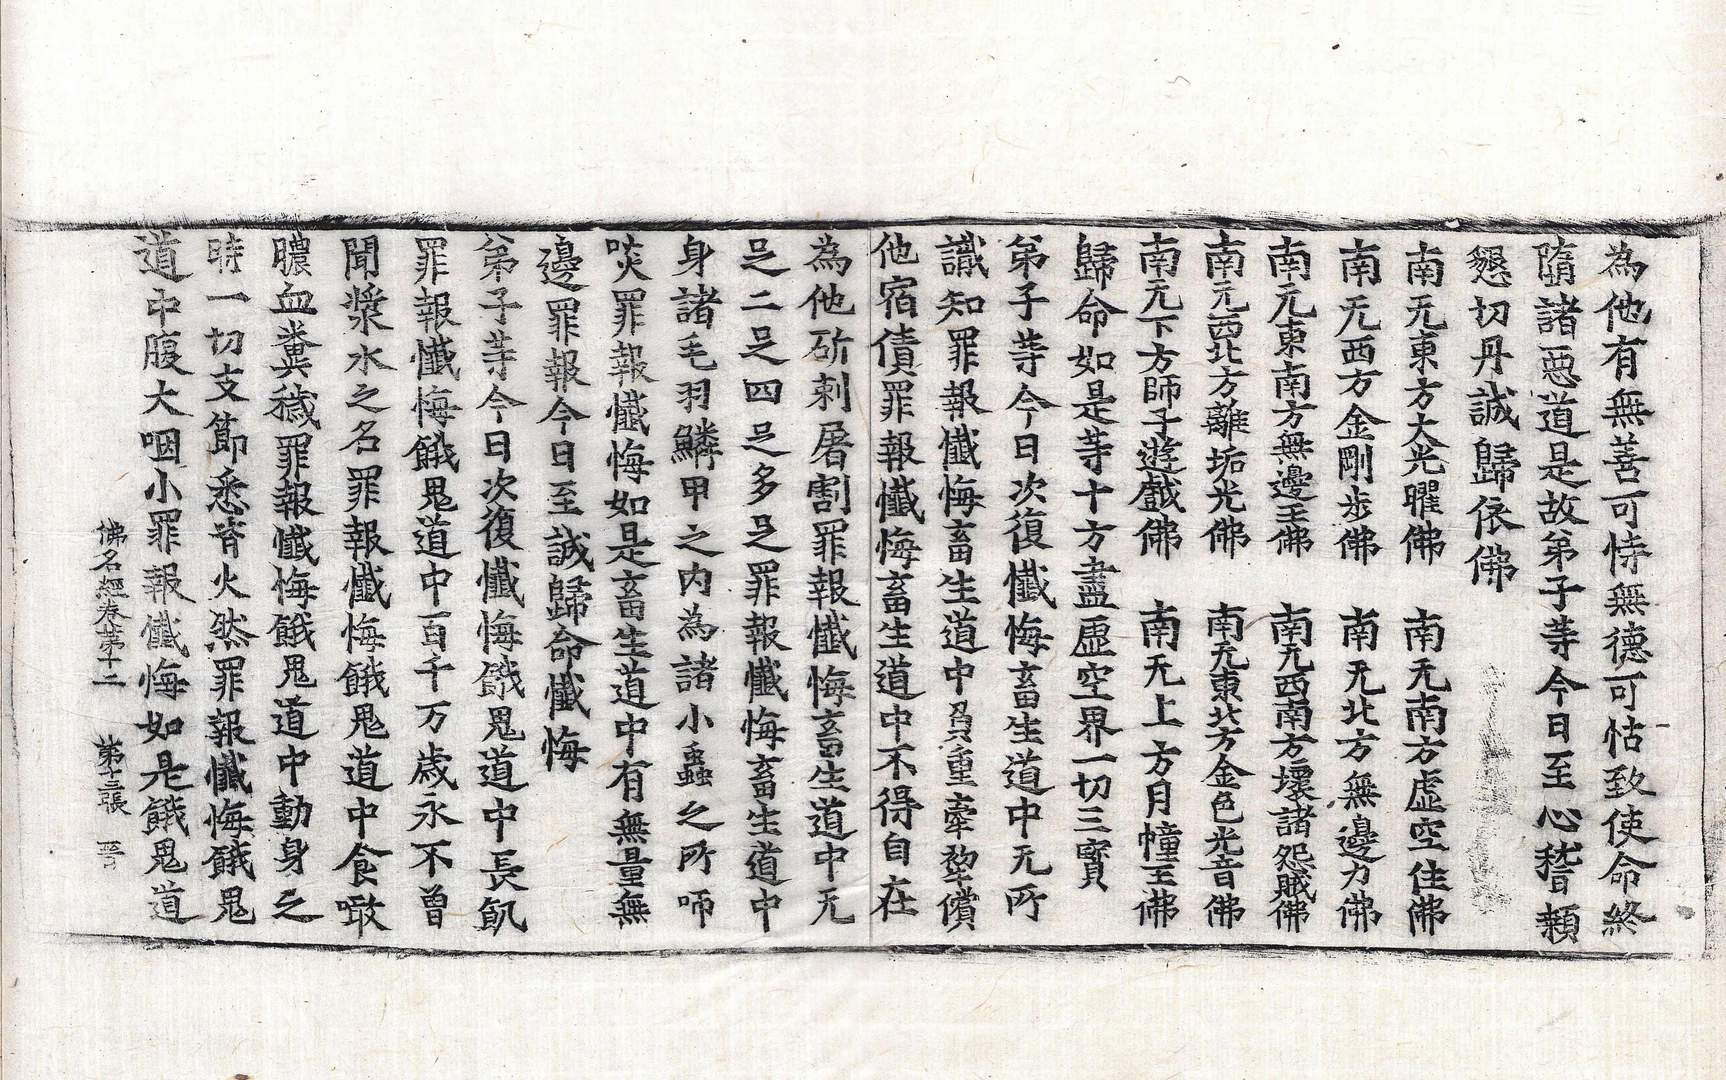 為他有無善可恃無德可怙致使命終
墮諸惡道是故弟子等今日至心稽顙
懇切丹誠歸依佛
南无東方大光曜佛　南无南方虛空住佛
南无西方金剛步佛　南无北方無邊力佛
南无東南方無邊王佛　南无西南方壞諸怨賊佛
南无西北方離垢光佛　南无東北方金色光音佛
南无下方師子遊戲佛　南无上方月幢王佛
歸命如是等十方盡虛空界一切三寶
弟子等今日次復懺悔畜生道中无所
識知罪報懺悔畜生道中負重牽犂償
他宿債罪報懺悔畜生道中不得自在
為他斫刺屠割罪報懺悔畜生道中无
足二足四足多足罪報懺悔畜生道中
身諸毛羽鱗甲之內為諸小蟲之所唼
啖罪報懺悔如是畜生道中有無量無
邊罪報今日至誠歸命懺悔
弟子等今日次復懺悔餓鬼道中長飢
罪報懺悔餓鬼道中百千万歲永不曾
聞漿水之名罪報懺悔餓鬼道中食噉
膿血糞穢罪報懺悔餓鬼道中動身之
時一切支節悉皆火然罪報懺悔餓鬼
道中腹大咽小罪報懺悔如是餓鬼道
佛名經卷第十二　第十三張